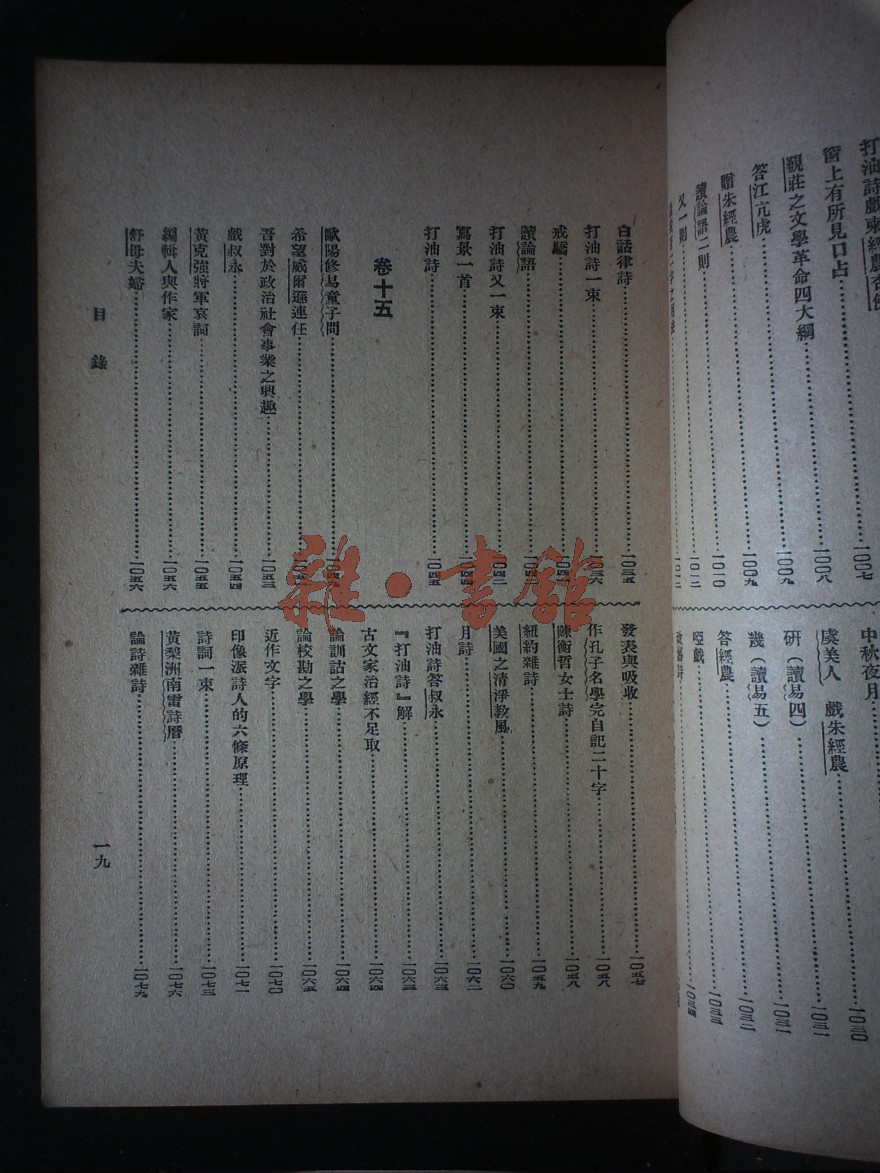 打油詩戲柬經農杏佛……一〇〇七
窗上有所見口占……一〇〇八
觀莊之文學革命四大綱……一〇〇九
答江亢虎……一〇〇九
贈朱經農……一〇一〇
讀論語二則……一〇一二
又一則
中秋夜月……一〇三〇
虞美人　戲朱經農……一〇三一
研（讀易四）……一〇三一
幾（讀易五）……一〇三二
答經農……一〇三三
啞戲……一〇三四
白話律詩……一〇三五
打油詩一束……一〇三六
戒驕……一〇四
讀論語……一〇四二
打油詩又一束……一〇四二
寫景一首……一〇四四
打油詩……一〇四五
卷十五
歐陽修易童子問……一〇四九
希望威爾遜連任……一〇五
吾對於政治社會事業之興趣……一〇五三
戲叔永……一〇五四
黃克強將軍哀詞……一〇五五
編輯人與作家……一〇五六
舒母夫婦……一〇五六
發表與吸收……一〇五七
作孔子名學完自記二十字……一〇五八
陳衡哲女士詩……一〇五八
紐約雜詩……一〇五九
美國之清淨教風……一〇六〇
月詩……一〇六二
打油詩答叔永……一〇六三
『打油詩』解……一〇六三
古文家治經不足取……一〇六四
論訓詁之學……一〇六四
論校勘之學……一〇六五
近作文字……一〇七〇
印像派詩人的六條原理……一〇七一
詩詞一束……一〇七三
黃梨洲南雷詩曆……一〇七六
論詩雜詩……一〇七九
目錄
一九
雜·書館